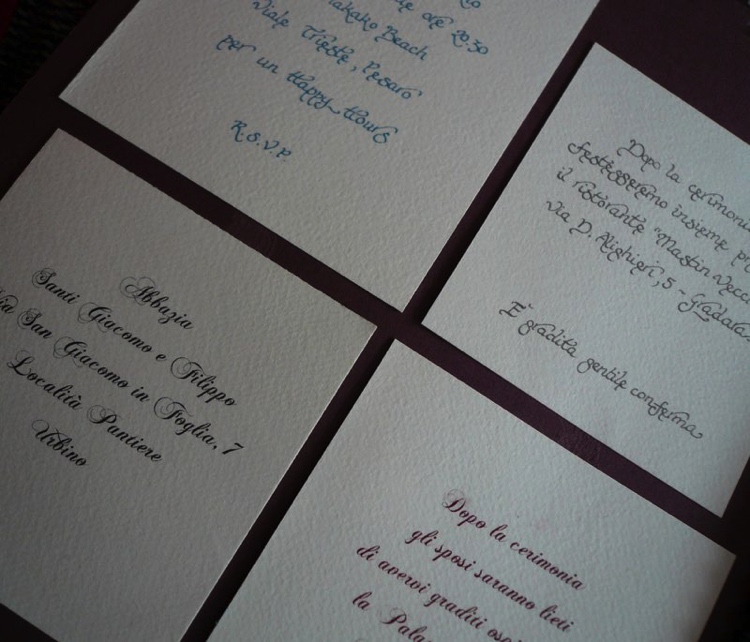 ore 20.30
Beach
Viale Trieste, Pesaro
per un Happy Hours
R.S.V.P.
Dopo la cerimonia
festeggeremo insieme
il ristorante "Mastin
via D. Alighieri, 5 - Gradara
E' gradita gentile conferma
Abbazia
Santi Giacomo e Filippo
Via San Giacomo in Foglia, 7
Località Pantiere
Urbino
Dopo la cerimonia
gli sposi saranno lieti
di avervi graditi
la